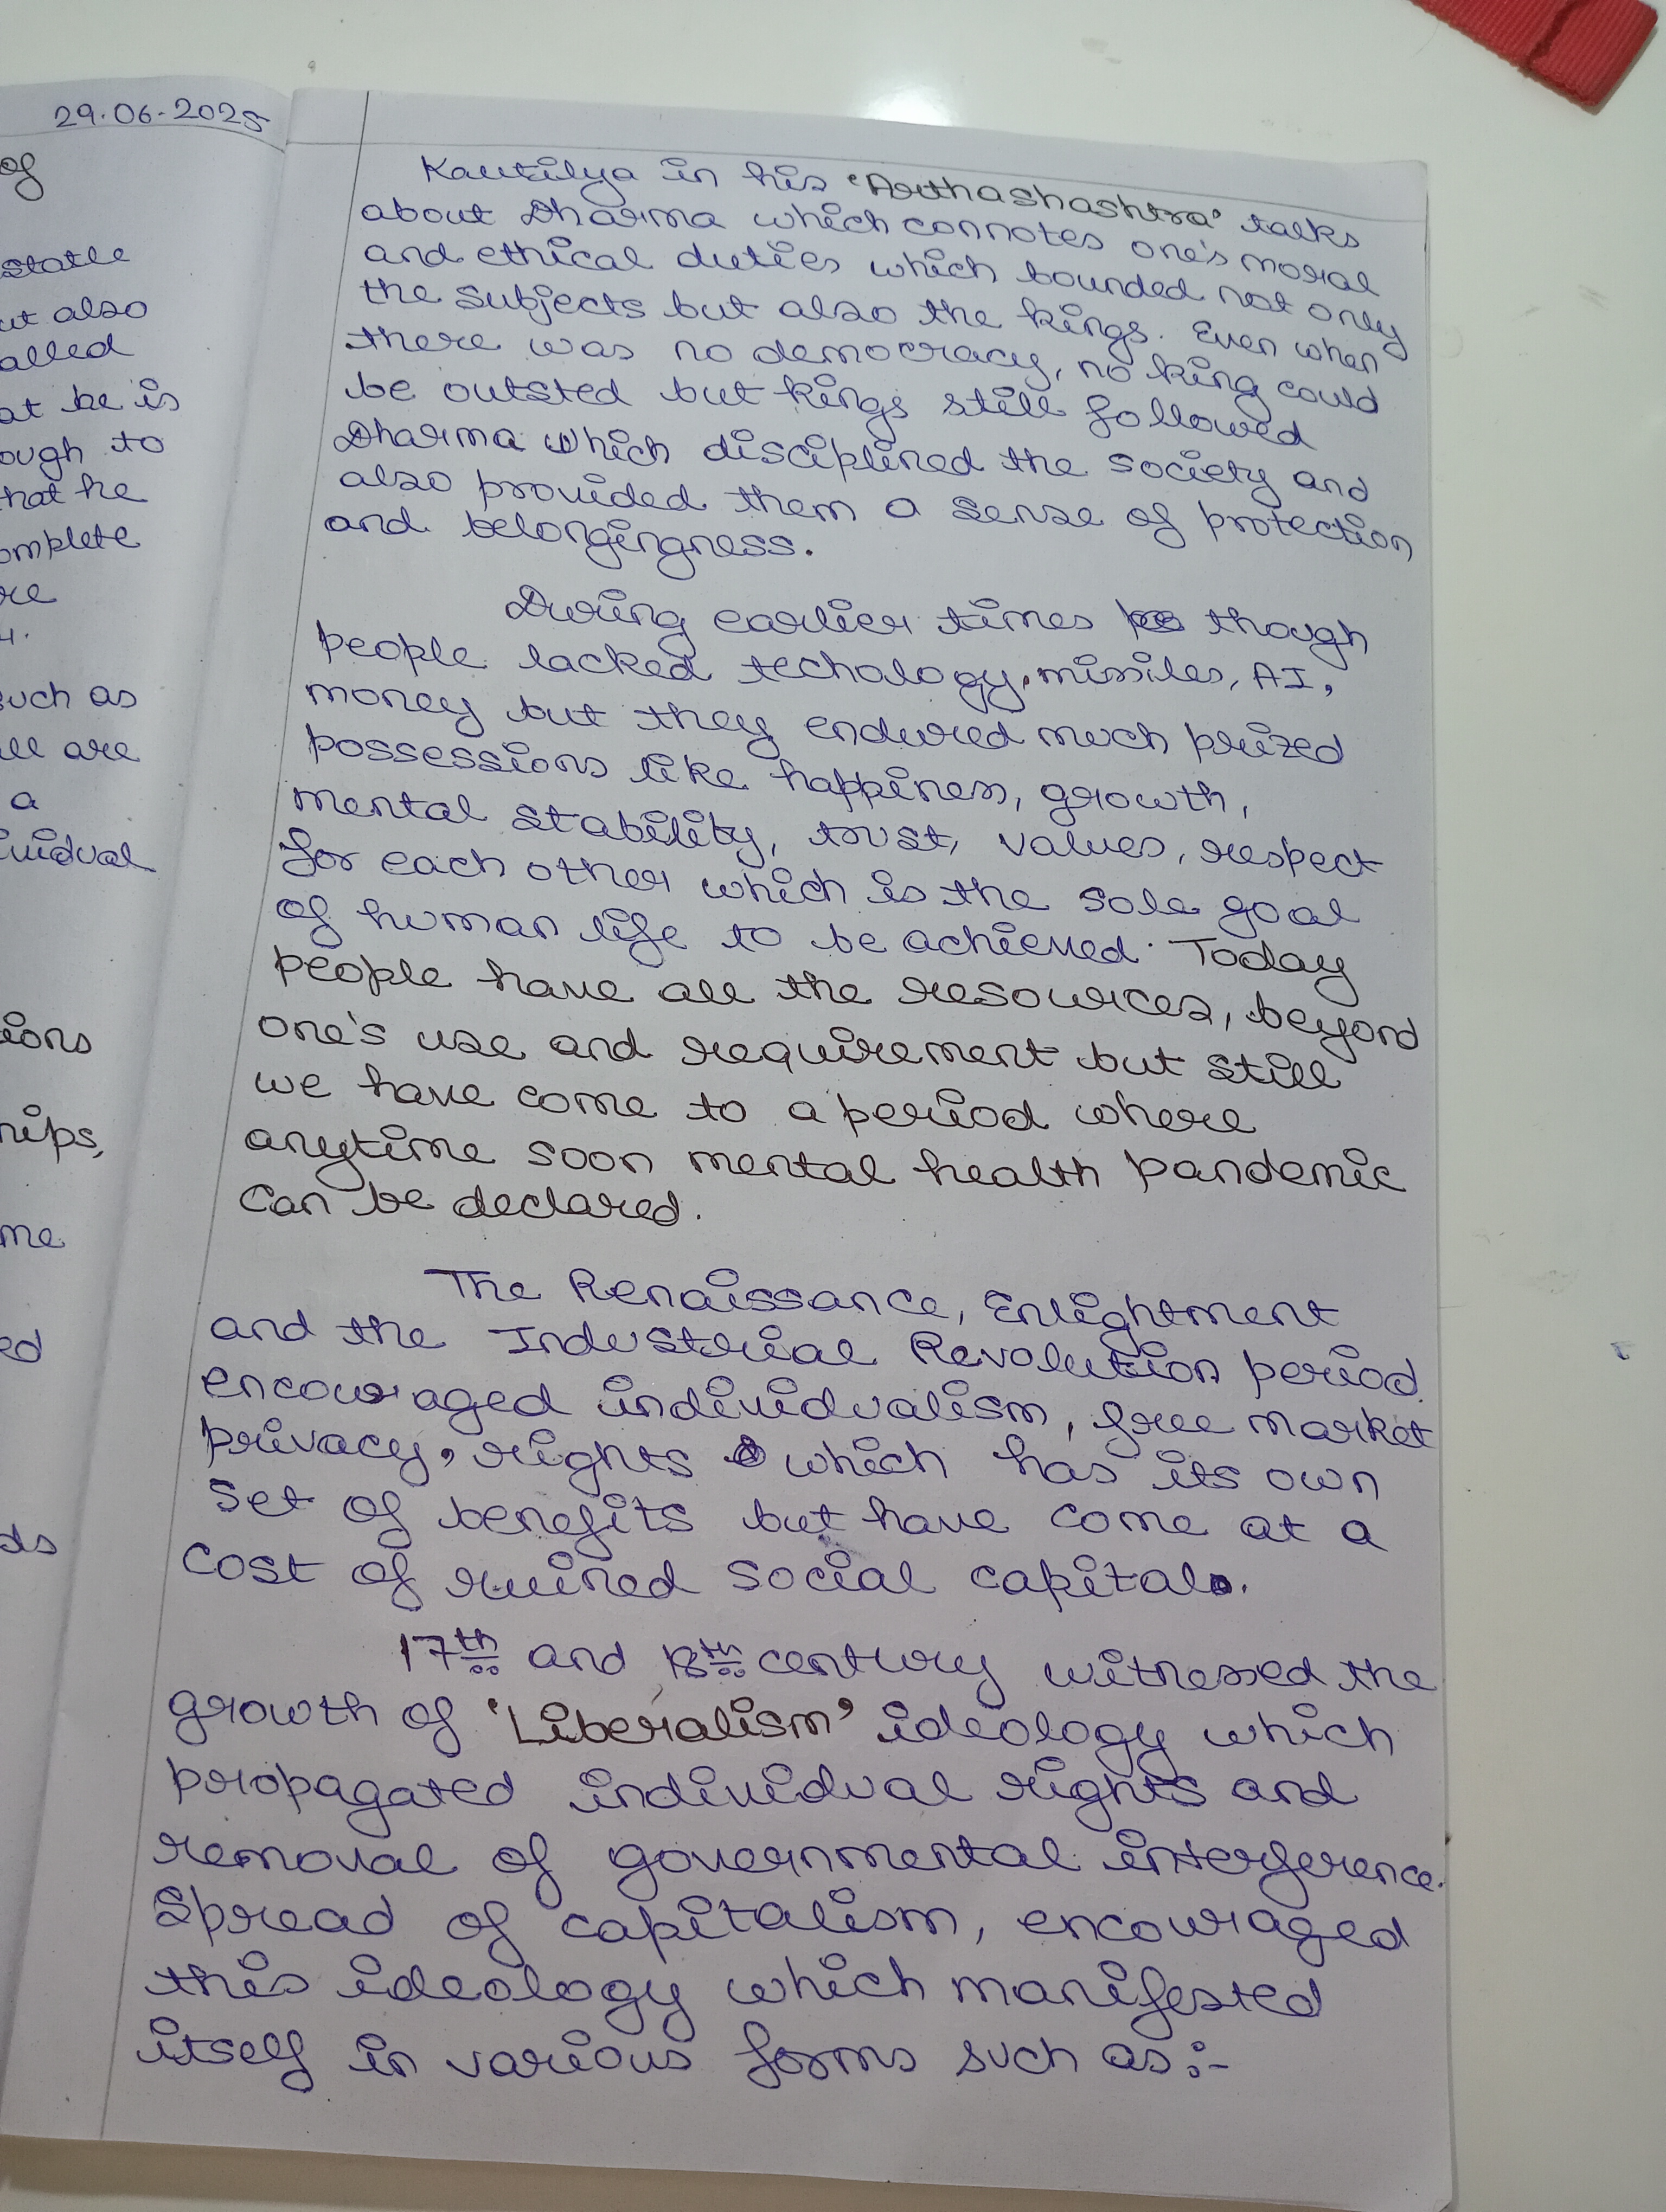 29.06.2025
of
state
ut also
alled
at he is
ough to
hat he
omplete
re
4.
such as
all are
a
ividual
ions
hips,
me
ed
ds
Kautilya in his 'Arthashashtra' talks
about Dharma which connotes one's moral
and ethical duties which bounded not only
the subjects but also the kings. Even when
there was no democracy, no king could
be outsted but kings still followed
Dharma which disciplined the society and
also provided them a sense of protection
and belongingness.
During earlier times though
people lacked techology, missiles, AI,
money but they endured much prized
possessions like happiness, growth,
mental stability, trust, values, respect
for each other which is the sole goal
of human life to be achieved. Today
people have all the resources, beyond
one's use and requirement but still
we have come to a period where
anytime soon mental health pandemic
can be declared.
The Renaissance, Enlightment
and the Industrial Revolution period
encouraged individualism, free market
privacy, rights which has its own
set of benefits but have come at a
cost of ruined social capital.
17th and 18th century witnessed the
growth of 'Liberalism' ideology which
propagated individual rights and
removal of governmental interference.
Spread of capitalism, encouraged
this ideology which manifested
itself in various forms such as:-